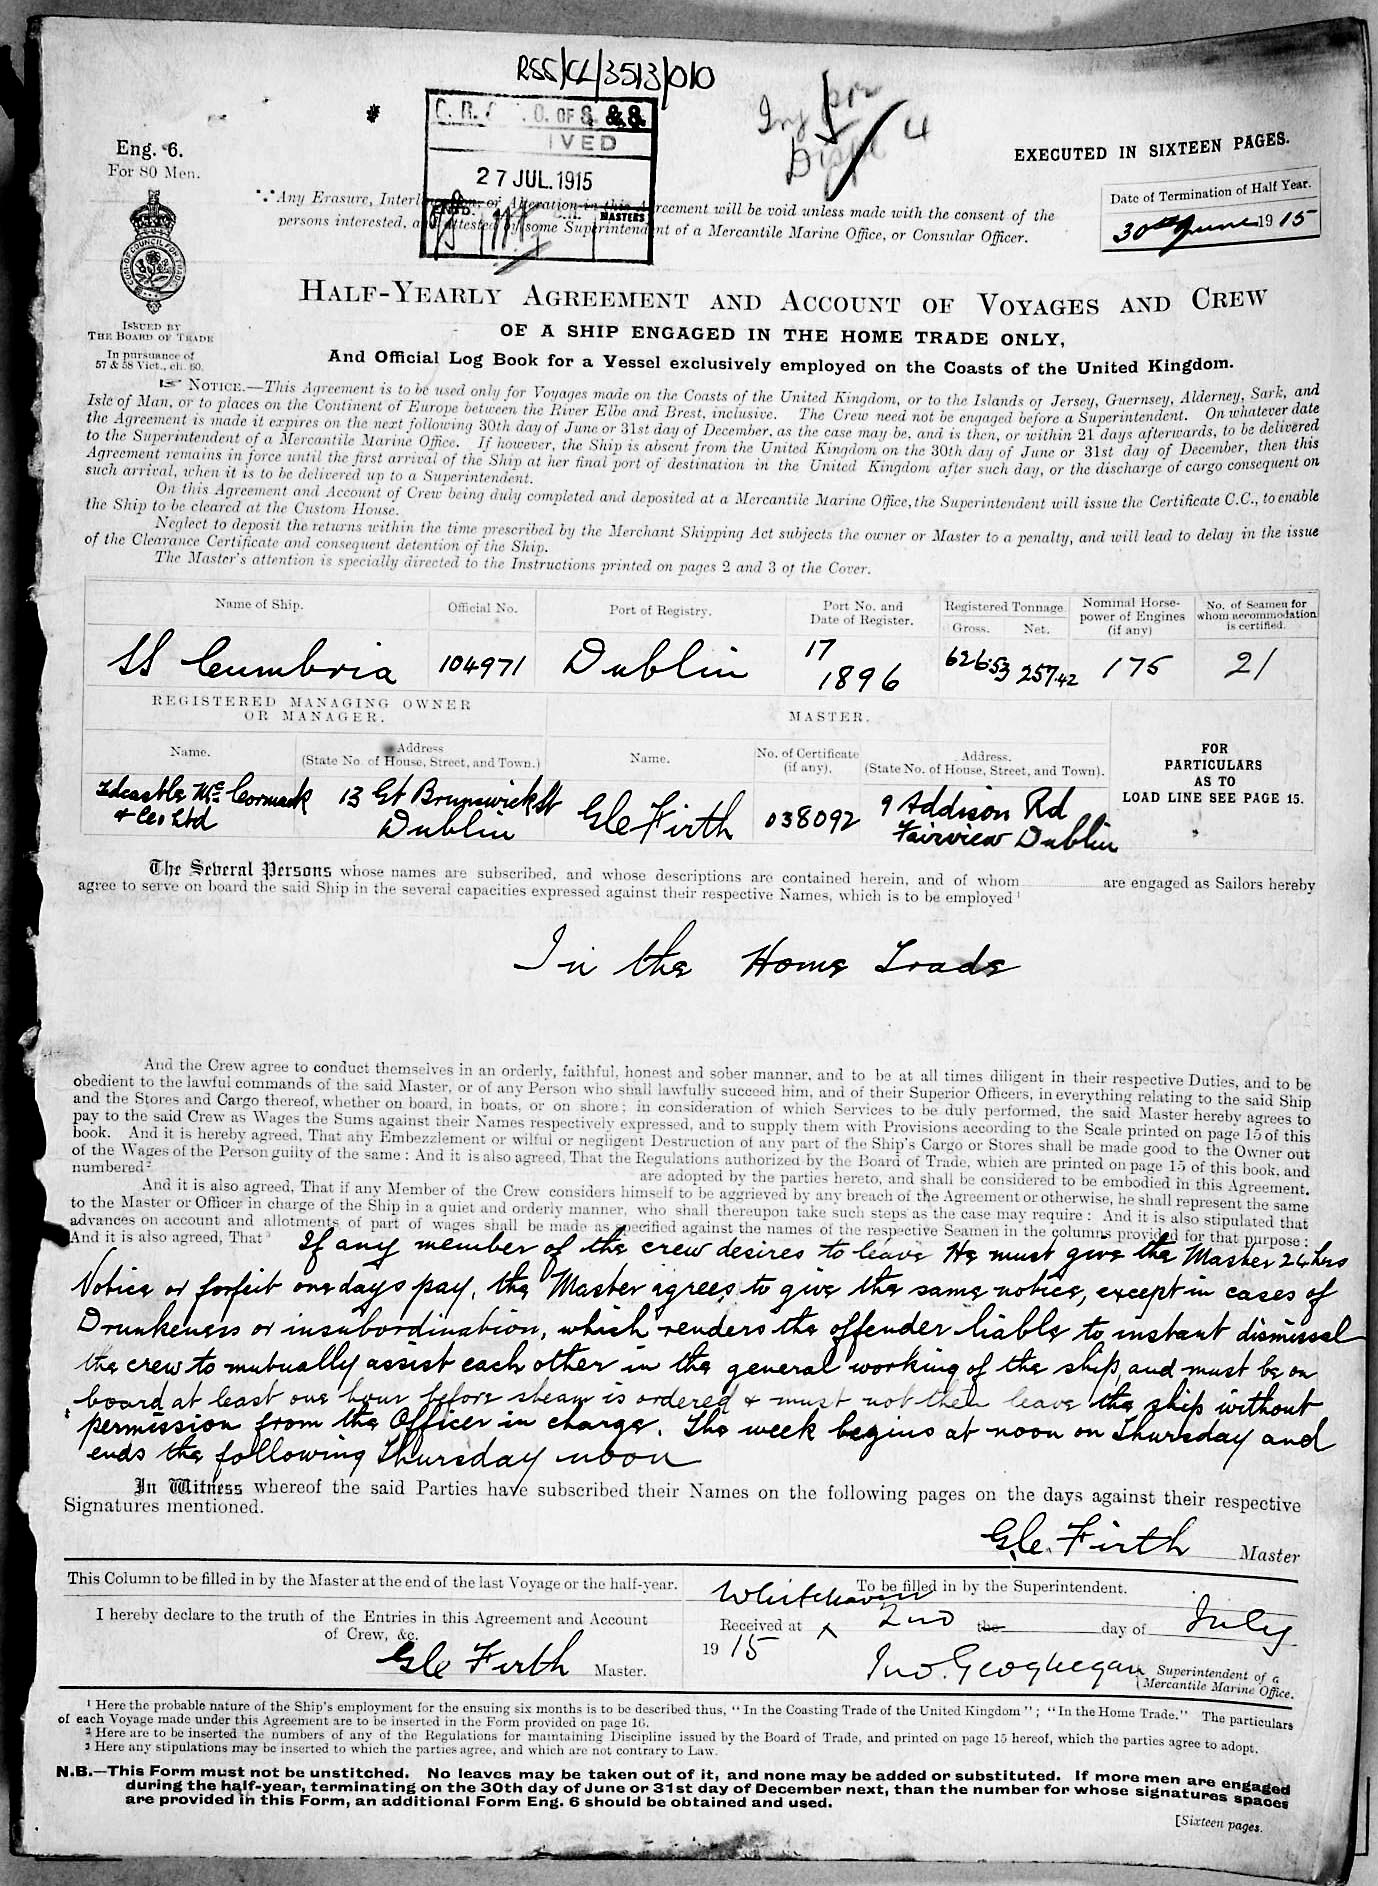 RSS/CL/3513/010
C. R. O. OF S. & S.
IVED
27 JUL. 1915
MASTERS
4
Eng. 6.
For 80 Men.
EXECUTED IN SIXTEEN PAGES.
Date of Termination of Half Year.
30th June 1915
Any Erasure, Interl or Alteration in this Agreement will be void unless made with the consent of the
persons interested, and attested by some Superintendent of a Mercantile Marine Office, or Consular Officer.
ISSUED BY
THE BOARD OF TRADE
In pursuance of
57 & 58 Vict., ch. 60.
HALF-YEARLY AGREEMENT AND ACCOUNT OF VOYAGES AND CREW
OF A SHIP ENGAGED IN THE HOME TRADE ONLY,
And Official Log Book for a Vessel exclusively employed on the Coasts of the United Kingdom.
NOTICE.—This Agreement is to be used only for Voyages made on the Coasts of the United Kingdom, or to the Islands of Jersey, Guernsey, Alderney, Sark, and
Isle of Man, or to places on the Continent of Europe between the River Elbe and Brest, inclusive. The Crew need not be engaged before a Superintendent. On whatever date
the Agreement is made it expires on the next following 30th day of June or 31st day of December, as the case may be, and is then, or within 21 days afterwards, to be delivered
to the Superintendent of a Mercantile Marine Office. If however, the Ship is absent from the United Kingdom on the 30th day of June or 31st day of December, then this
Agreement remains in force until the first arrival of the Ship at her final port of destination in the United Kingdom after such day, or the discharge of cargo consequent on
such arrival, when it is to be delivered up to a Superintendent.
On this Agreement and Account of Crew being duly completed and deposited at a Mercantile Marine Office, the Superintendent will issue the Certificate C.C., to enable
the Ship to be cleared at the Custom House.
Neglect to deposit the returns within the time prescribed by the Merchant Shipping Act subjects the owner or Master to a penalty, and will lead to delay in the issue
of the Clearance Certificate and consequent detention of the Ship.
The Master's attention is specially directed to the Instructions printed on pages 2 and 3 of the Cover.
Name of Ship. Official No. Port of Registry. Port No. and Date of Register. Registered Tonnage Gross. Net. Nominal Horse-power of Engines (if any) No. of Seamen for whom accommodation is certified.
SS Cumbria 104971 Dublin 17 1896 626.53 257.42 175 21
REGISTERED MANAGING OWNER
OR MANAGER.
MASTER.
Name. Address (State No. of House, Street, and Town.) Name. No. of Certificate (if any). Address. (State No. of House, Street, and Town).
FOR
PARTICULARS
AS TO
LOAD LINE SEE PAGE 15.
Tedcastle McCormack 13 Gt Brunswick St Gle Firth 038092 9 Addison Rd
& Co. Ltd Dublin Fairview Dublin
The Several Persons whose names are subscribed, and whose descriptions are contained herein, and of whom are engaged as Sailors hereby
agree to serve on board the said Ship in the several capacities expressed against their respective Names, which is to be employed¹
In the Home Trade
And the Crew agree to conduct themselves in an orderly, faithful, honest and sober manner, and to be at all times diligent in their respective Duties, and to be
obedient to the lawful commands of the said Master, or of any Person who shall lawfully succeed him, and of their Superior Officers, in everything relating to the said Ship
and the Stores and Cargo thereof, whether on board, in boats, or on shore; in consideration of which Services to be duly performed, the said Master hereby agrees to
pay to the said Crew as Wages the Sums against their Names respectively expressed, and to supply them with Provisions according to the Scale printed on page 15 of this
book. And it is hereby agreed, That any Embezzlement or wilful or negligent Destruction of any part of the Ship's Cargo or Stores shall be made good to the Owner out
of the Wages of the Person guilty of the same: And it is also agreed, That the Regulations authorized by the Board of Trade, which are printed on page 15 of this book, and
numbered² are adopted by the parties hereto, and shall be considered to be embodied in this Agreement.
And it is also agreed, That if any Member of the Crew considers himself to be aggrieved by any breach of the Agreement or otherwise, he shall represent the same
to the Master or Officer in charge of the Ship in a quiet and orderly manner, who shall thereupon take such steps as the case may require: And it is also stipulated that
advances on account and allotments of part of wages shall be made as specified against the names of the respective Seamen in the columns provided for that purpose:
And it is also agreed, That³ If any member of the crew desires to leave He must give the Master 24 hrs
Notice or forfeit one days pay, the Master agrees to give the same notice, except in cases of
Drunkeness or insubordination, which renders the offender liable to instant dismissal
the crew to mutually assist each other in the general working of the ship, and must be on
board at least one hour before steam is ordered & must not then leave the ship without
permission from the Officer in charge. The week begins at noon on Thursday and
ends the following Thursday noon
In Witness whereof the said Parties have subscribed their Names on the following pages on the days against their respective
Signatures mentioned.
Gle. Firth Master
This Column to be filled in by the Master at the end of the last Voyage or the half-year.
I hereby declare to the truth of the Entries in this Agreement and Account
of Crew, &c.
Gle Firth Master.
To be filled in by the Superintendent.
Whitehaven
Received at 2nd the day of July
1915
Jno. Geoghegan Superintendent of a
Mercantile Marine Office.
¹ Here the probable nature of the Ship's employment for the ensuing six months is to be described thus, "In the Coasting Trade of the United Kingdom"; "In the Home Trade." The particulars
of each Voyage made under this Agreement are to be inserted in the Form provided on page 16.
² Here are to be inserted the numbers of any of the Regulations for maintaining Discipline issued by the Board of Trade, and printed on page 15 hereof, which the parties agree to adopt.
³ Here any stipulations may be inserted to which the parties agree, and which are not contrary to Law.
N.B.—This Form must not be unstitched. No leaves may be taken out of it, and none may be added or substituted. If more men are engaged
during the half-year, terminating on the 30th day of June or 31st day of December next, than the number for whose signatures spaces
are provided in this Form, an additional Form Eng. 6 should be obtained and used.
[Sixteen pages.